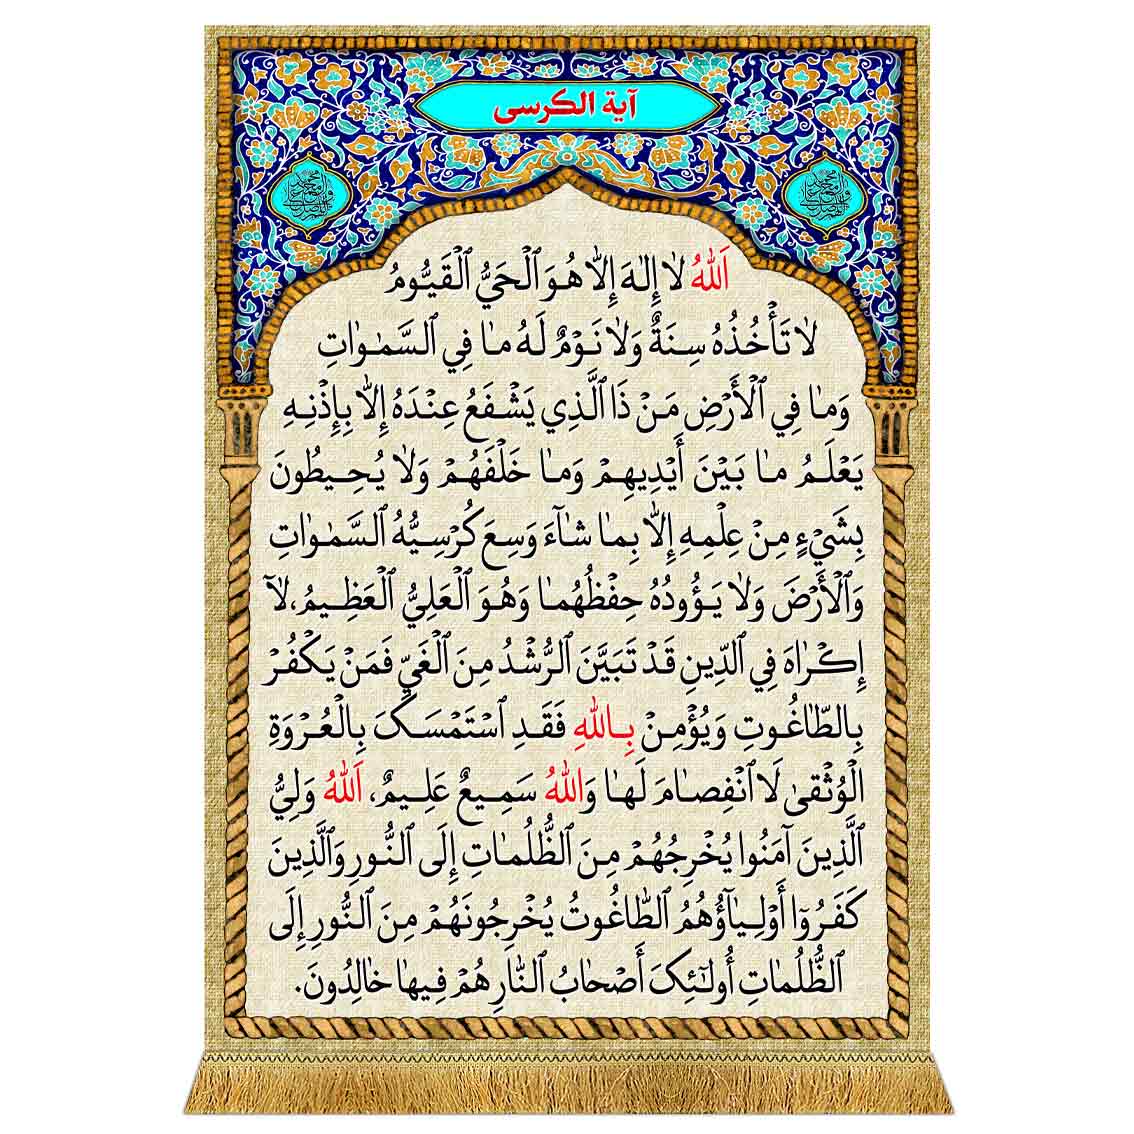 آية الكرسى
اَللّٰهُ لاٰ إِلٰهَ إِلاّٰ هُوَ اَلْحَيُّ اَلْقَيُّومُ
لاٰ تَأْخُذُهُ سِنَةٌ وَلاٰ نَوْمٌ لَهُ مٰا فِي اَلسَّمٰوٰاتِ
وَمٰا فِي اَلْأَرْضِ مَنْ ذَا اَلَّذِي يَشْفَعُ عِنْدَهُ إِلاّٰ بِإِذْنِهِ
يَعْلَمُ مٰا بَيْنَ أَيْدِيهِمْ وَمٰا خَلْفَهُمْ وَلاٰ يُحِيطُونَ
بِشَيْءٍ مِنْ عِلْمِهِ إِلاّٰ بِمٰا شٰاءَ وَسِعَ كُرْسِيُّهُ اَلسَّمٰوٰاتِ
وَاَلْأَرْضَ وَلاٰ يَؤُودُهُ حِفْظُهُمٰا وَهُوَ اَلْعَلِيُّ اَلْعَظِيمُ، لاٰ
إِكْرٰاهَ فِي اَلدِّينِ قَدْ تَبَيَّنَ اَلرُّشْدُ مِنَ اَلْغَيِّ فَمَنْ يَكْفُرْ
بِالطّٰاغُوتِ وَيُؤْمِنْ بِاللّٰهِ فَقَدِ اِسْتَمْسَكَ بِالْعُرْوَةِ
الْوُثْقىٰ لاَ اَنْفِصٰامَ لَهٰا وَاللّٰهُ سَمِيعٌ عَلِيمٌ، اَللّٰهُ وَلِيُّ
اَلَّذِينَ آمَنُوا يُخْرِجُهُمْ مِنَ اَلظُّلُمٰاتِ إِلَى اَلنُّورِ وَاَلَّذِينَ
كَفَرُوا أَوْلِيٰاؤُهُمُ اَلطّٰاغُوتُ يُخْرِجُونَهُمْ مِنَ اَلنُّورِ إِلَى
اَلظُّلُمٰاتِ أُولٰئِكَ أَصْحٰابُ اَلنّٰارِ هُمْ فِيهٰا خٰالِدُونَ.